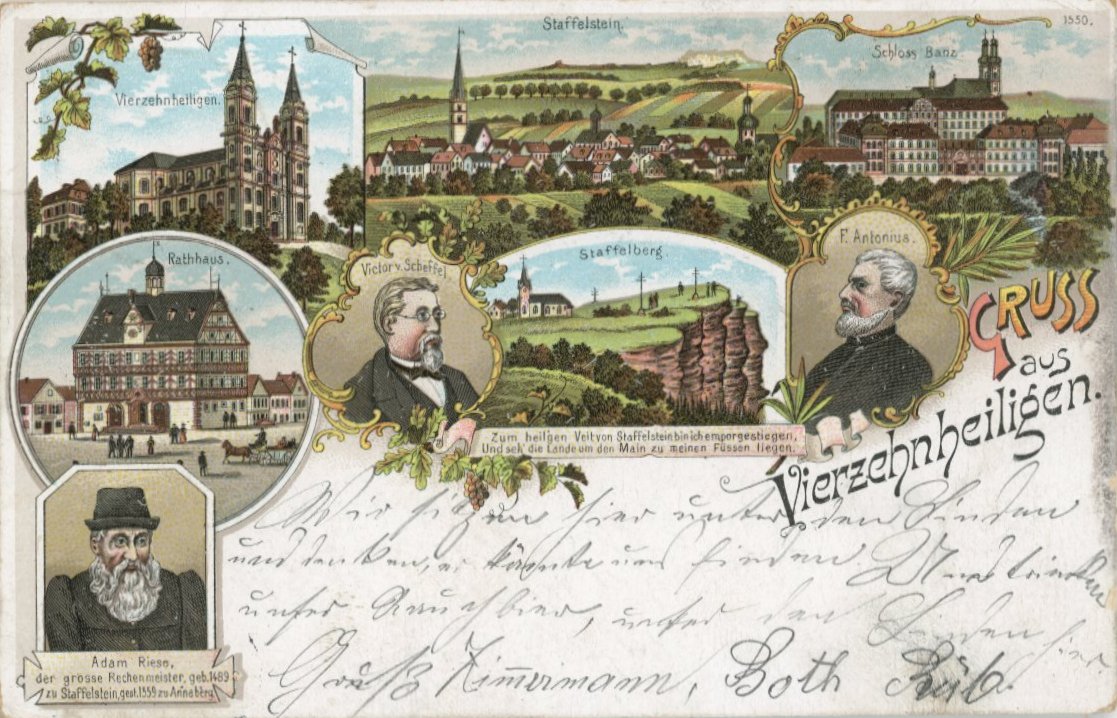 1550.
Staffelstein.
Schloss Banz.
Vierzehnheiligen.
Rathhaus.
Victor v. Scheffel
Staffelberg.
P. Antonius.
GRUSS
aus
Vierzehnheiligen.
Zum heil'gen Veit von Staffelstein bin ich emporgestiegen,
Und seh' die Lande um den Main zu meinen Füssen liegen.
Wir sitzen hier unter den Linden
und denken, er könnte uns finden
unser Rauchbier, unter den Linden hier
Gruß Zimmermann, Both
Adam Riese,
der grosse Rechenmeister, geb. 1489
zu Staffelstein, gest. 1559 zu Annaberg.